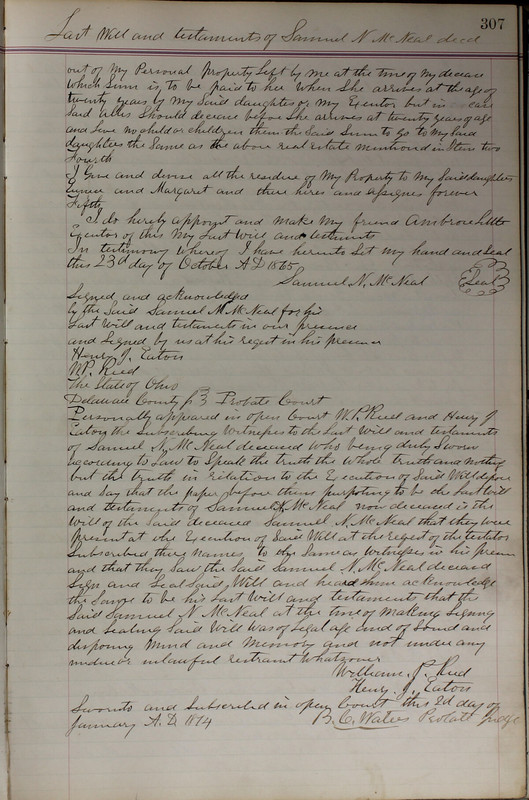 307
Last Will and testaments of Samuel N. McNeal decd
out of My Personal Property Left by me at the time of My decease
which Sum is to be paid to her when She arrives at the age of
twenty years by My Said daughters or My Exector but in case
Said Should decease before She arrives at twenty years of age
and Leve no child or children then the Said Sum to go to My Said
daughters the Same as the above real estate mentioned in Item two
Fourth
I Gave and devise all the residue of My Property to My Said daughters
and Margaret and there hires and assignes forever
Fifthy
I do hereby appoint and make My friend Ambrose
Exector of this My Last Will and testiments
In testimony whereof I have hereunto Set my hand and Seal
this 23d day of October A D 1865
Samuel N. McNeal Seal
Signed and acknowledged
by the Said Samuel N. McNeal for his
Last Will and testiments in our presence
and Signed by us at his reqest in his presence
Henry J. Eaton
W.P. Reed
The State of Ohio
Delaware County Probate Court
Personally appeared in open Court W.P. Reed and Henry J.
Eaton the Subscribing Witnesses to the Last Will and testaments
of Samuel N. McNeal deceased who being duly Sworn
according to Law to Speak the truth the whole truth and nothing
but the truth in relation to the Execution of Said Will depose
and Say that the paper before them purpoting to be the Last Will
and testiments of Samuel N McNeal now deceased is the
Will of the Said deceased Samuel N. McNeal that they were
Present at the Execution of Said Will at the Reqest of the testator
Subscribed they names to the Same as Witnesses in his presence
and that they Saw the Said Samuel N. McNeal deceased
Sign and Seal Said Will and heard him acknowledge
the Same to be his Last Will and testiments that the
Said Samuel N. McNeal at the time of Making Signing
and Sealing Said Will was of Legal age and of Sound and
disposing Mind and Memory and not under any
undue or unlawful restraint Whatsoever
William. P. Reed
Henry. J. Eaton
Sworn to and Subscribed in open Court this 2d day of
January A.D. 1874 B. C. Waters Probate Judge